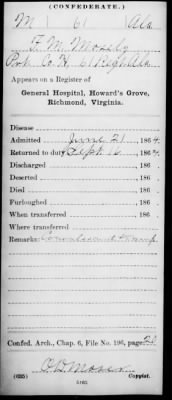 (CONFEDERATE.)
M | 61 | Ala
F. M. Mosely
Pvt. Co. H, 61 Regt Ala
Appears on a Register of
General Hospital, Howard's Grove,
Richmond, Virginia.
Disease
Admitted June 21, 1864.
Returned to duty Sept 16, 1864.
Discharged , 186 .
Deserted , 186 .
Died , 186 .
Furloughed , 186 .
When transferred , 186 .
Where transferred
Remarks: Convalescent Camp
Confed. Arch., Chap. 6, File No. 196, page
(635)
Copyist.